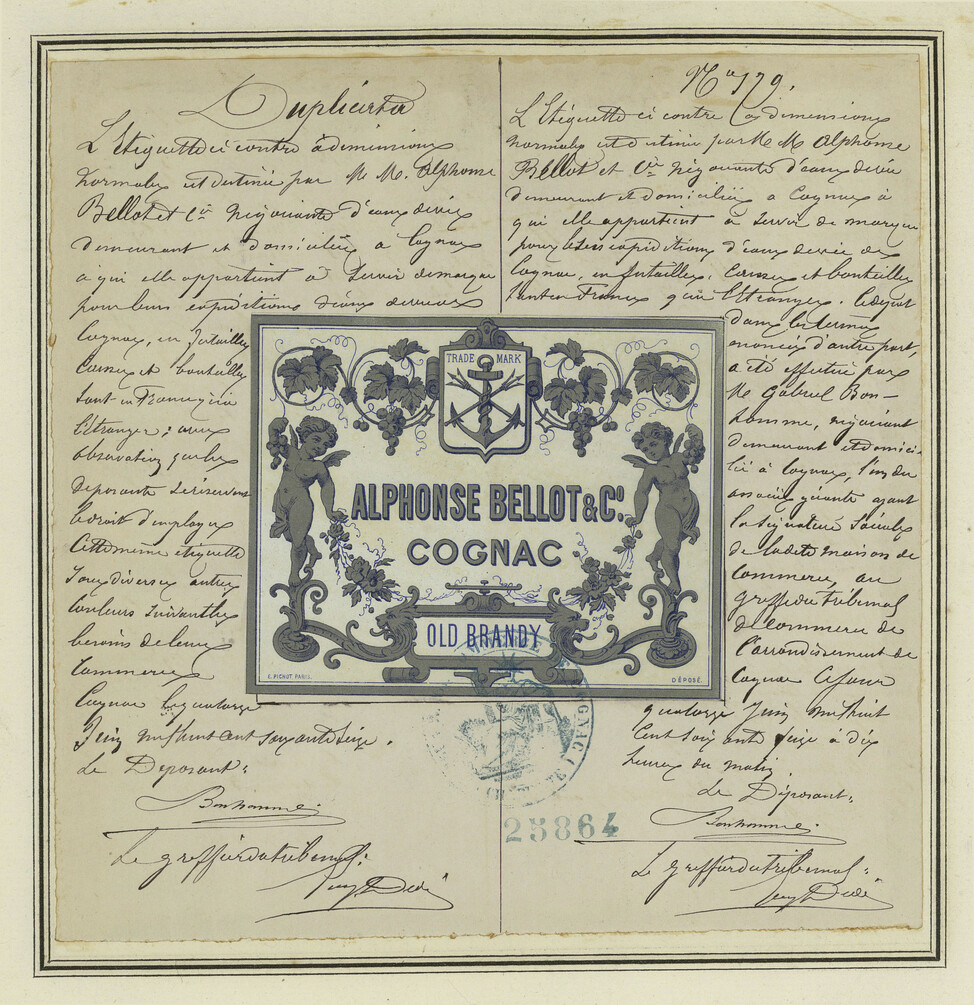 Duplicata
L'Etiquette ci contre à dimensions
normales est destinée par M. M. Alphonse
Bellot et Cie Négociants d'eaux de vie
demeurant et domiciliés à Cognac
à qui elle appartient à servir de marque
pour leurs expéditions d'eaux de vie de
Cognac, en futailles
Caisses et bouteilles
tant en France qu'à
l'étranger; avec
observation que les
déposants se réservent
le droit d'employer
cette même étiquette
sous diverses autres
couleurs suivant les
besoins de leur
commerce
Cognac le quatorze
Juin mil huit cent soixante seize.
Le Déposant:
Bonhomme
Le greffier du tribunal:
No 179.
L'Etiquette ci contre à dimensions
normales est destinée par M. M. Alphonse
Bellot et Cie Négociants d'eaux de vie
demeurant et domiciliés à Cognac à
qui elle appartient à servir de marque
pour leurs expéditions d'eaux de vie de
Cognac, en futailles, Caisses et bouteilles
tant en France qu'à l'Etranger. Ce dépôt
dans les termes
énoncés d'autre part,
a été effectué par
M. Gabriel Bon-
homme, négociant
demeurant et domici-
lié à Cognac, l'un des
associés gérants ayant
la signature sociale
de la dite maison de
commerce, au
greffe du tribunal
de commerce de
l'arrondissement de
Cognac Ce jour
quatorze Juin mil huit
cent soixante seize à dix
heures du matin.
Le Déposant:
Bonhomme
Le greffier du tribunal:
TRADE MARK
ALPHONSE BELLOT & Co.
COGNAC
OLD BRANDY
E. PICHOT PARIS.
DÉPOSÉ.
25864